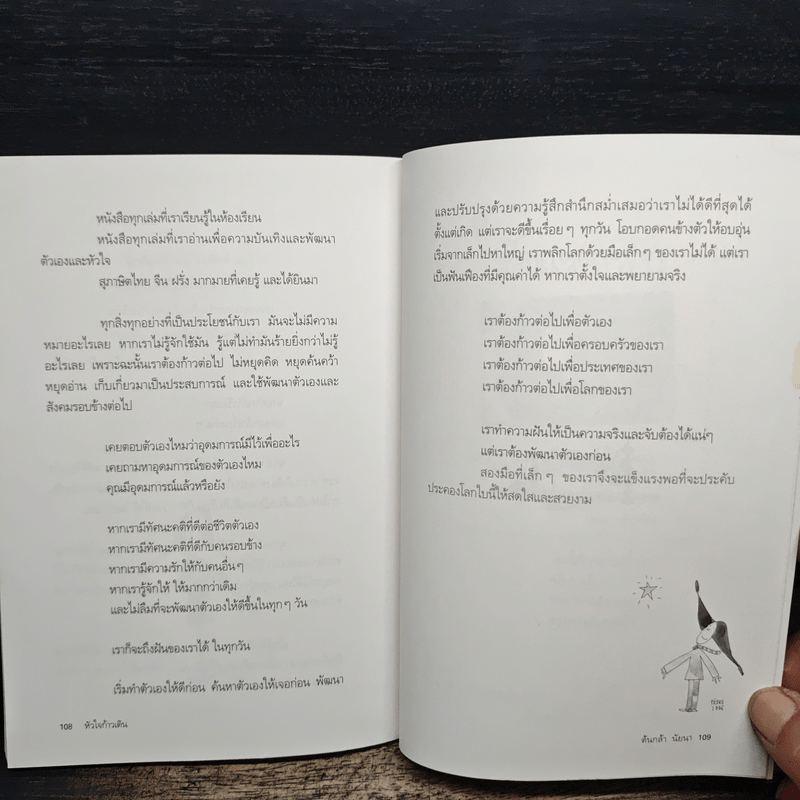 หนังสือทุกเล่มที่เราเรียนรู้ในห้องเรียน
หนังสือทุกเล่มที่เราอ่านเพื่อความบันเทิงและพัฒนา
ตัวเองและหัวใจ
สุภาษิตไทย จีน ฝรั่ง มากมายที่เคยรู้ และได้ยินมา
ทุกสิ่งทุกอย่างที่เป็นประโยชน์กับเรา มันจะไม่มีความ
หมายอะไรเลย หากเราไม่รู้จักใช้มัน รู้แต่ไม่ทำมันร้ายยิ่งกว่าไม่รู้
อะไรเลย เพราะฉะนั้นเราต้องก้าวต่อไป ไม่หยุดคิด หยุดค้นคว้า
หยุดอ่าน เก็บเกี่ยวมาเป็นประสบการณ์ และใช้พัฒนาตัวเองและ
สังคมรอบข้างต่อไป
เคยตอบตัวเองไหมว่าอุดมการณ์มีไว้เพื่ออะไร
เคยถามหาอุดมการณ์ของตัวเองไหม
คุณมีอุดมการณ์แล้วหรือยัง
หากเรามีทัศนะคติที่ดีต่อชีวิตตัวเอง
หากเรามีทัศนะคติที่ดีกับคนรอบข้าง
หากเรามีความรักให้กับคนอื่นๆ
หากเรารู้จักให้ ให้มากกว่าเดิม
และไม่ลืมที่จะพัฒนาตัวเองให้ดีขึ้นในทุกๆ วัน
เราก็จะถึงฝันของเราได้ ในทุกวัน
เริ่มทำตัวเองให้ดีก่อน ค้นหาตัวเองให้เจอก่อน พัฒนา
108 หัวใจก้าวเดิน
และปรับปรุงด้วยความรู้สึกสำนึกสม่ำเสมอว่าเราไม่ได้ดีที่สุดได้
ตั้งแต่เกิด แต่เราจะดีขึ้นเรื่อยๆ ทุกวัน โอบกอดคนข้างตัวให้อบอุ่น
เริ่มจากเล็กไปหาใหญ่ เราพลิกโลกด้วยมือเล็กๆ ของเราไม่ได้ แต่เรา
เป็นฟันเฟืองที่มีคุณค่าได้ หากเราตั้งใจและพยายามจริง
เราต้องก้าวต่อไปเพื่อตัวเอง
เราต้องก้าวต่อไปเพื่อครอบครัวของเรา
เราต้องก้าวต่อไปเพื่อประเทศของเรา
เราต้องก้าวต่อไปเพื่อโลกของเรา
เราทำความฝันให้เป็นความจริงและจับต้องได้แน่ๆ
แต่เราต้องพัฒนาตัวเองก่อน
สองมือที่เล็กๆ ของเราจึงจะแข็งแรงพอที่จะประคับ
ประคองโลกใบนี้ให้สดใสและสวยงาม
ต้นกล้า นัยนา 109